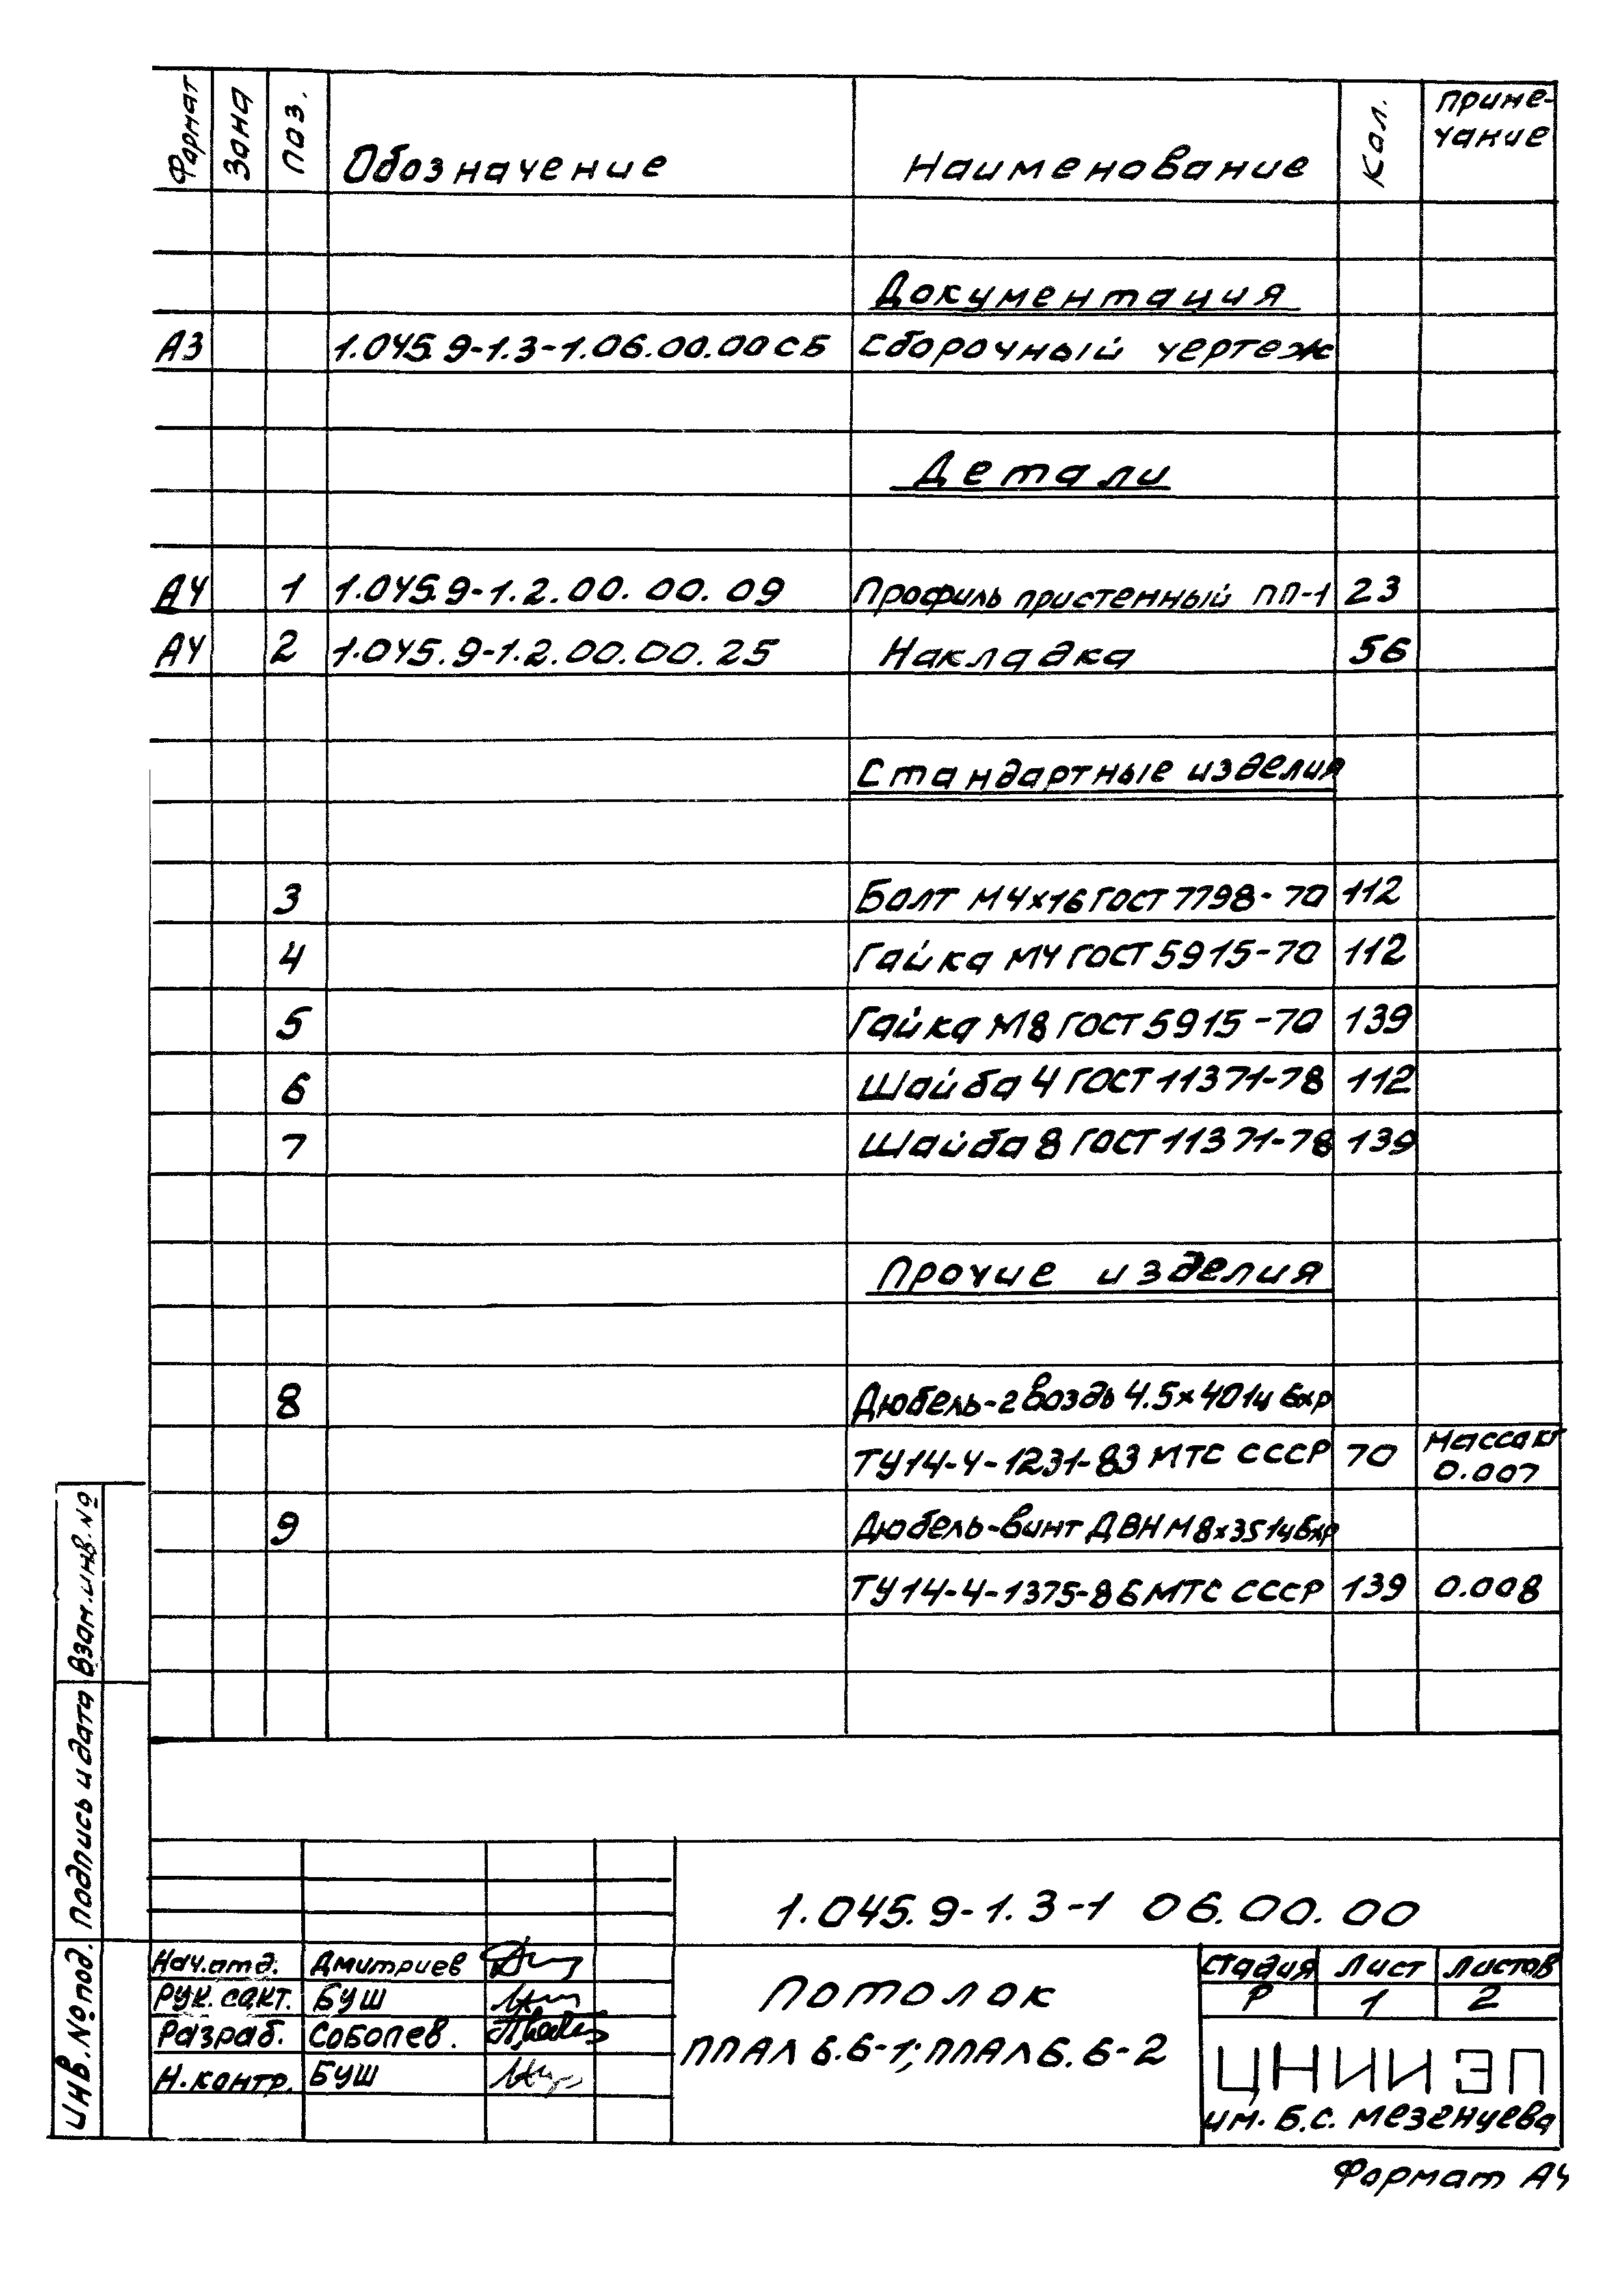 Формат Зона Поз. Обозначение Наименование Кол. Приме-
чание
Документация
А3 1.045.9-1.3-1.06.00.00СБ Сборочный чертеж
Детали
А4 1 1.045.9-1.2.00.00.09 Профиль пристенный ПП-1 23
А4 2 1.045.9-1.2.00.00.25 Накладка 56
Стандартные изделия
3 Болт М4х16 ГОСТ 7798-70 112
4 Гайка М4 ГОСТ 5915-70 112
5 Гайка М8 ГОСТ 5915-70 139
6 Шайба 4 ГОСТ 11371-78 112
7 Шайба 8 ГОСТ 11371-78 139
Прочие изделия
8 Дюбель-гвоздь 4.5х40 1ц 6хр
ТУ14-4-1231-83 МТС СССР 70 Масса кг
0.007
9 Дюбель-винт ДВН М8х35 1ц 6хр
ТУ14-4-1375-86 МТС СССР 139 0.008
Взам.инв.№
Подпись и дата
Инв.№ под.
1.045.9-1.3-1 06.00.00
Нач.отд. Дмитриев
Рук. сакт. Буш
Разраб. Соболев.
Н.контр. Буш
Потолок
ППАЛ 6.6-1; ППАЛ 6.6-2
Стадия Лист Листов
Р 1 2
ЦНИИЭП
им. Б.С. Мезенцева
Формат А4